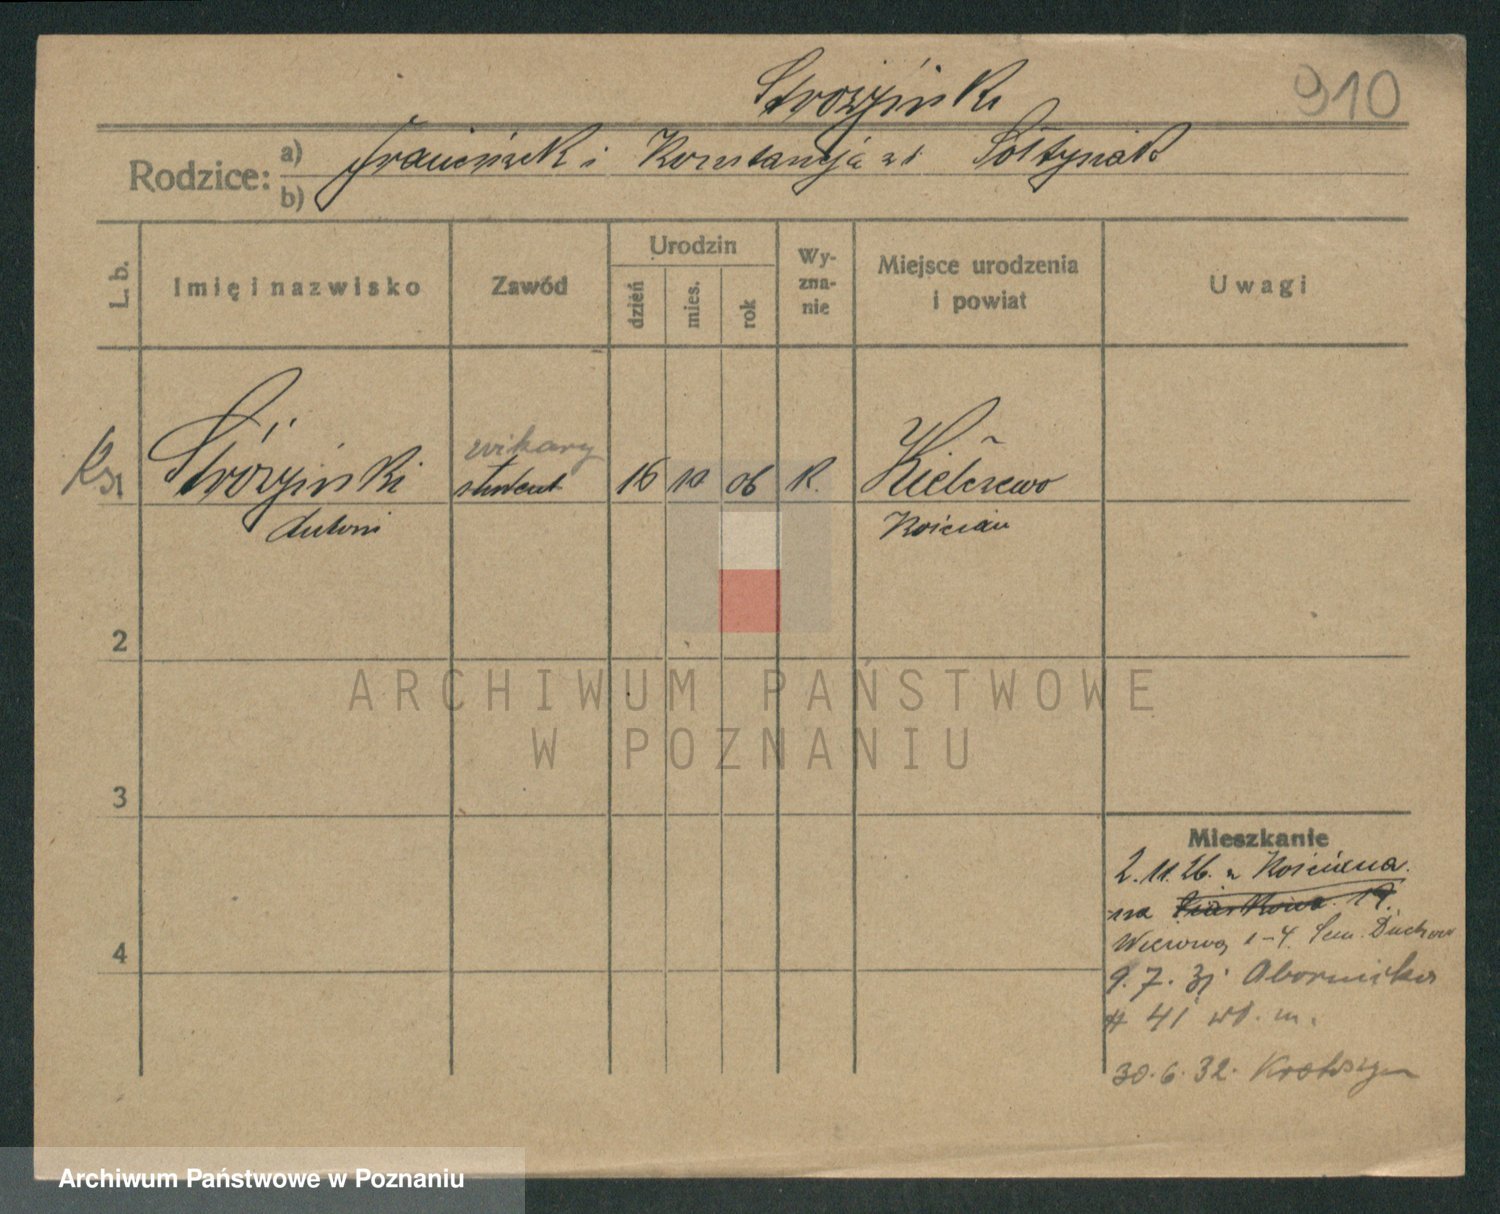 Stróżyński
910
Rodzice: a) Franciszek i Konstancja zd Sołtysiak
b)
L. b. Imię i nazwisko Zawód Urodzin dzień mies. rok Wyznanie Miejsce urodzenia i powiat Uwagi
wikary
Ks. 1 Stróżyński student 16 10 06 K. Kiełczewo
Antoni Kościan
2
ARCHIWUM PAŃSTWOWE
W POZNANIU
3
Mieszkanie
2.11.26. z Kościana
na 19.
4
Wieżowa 1-4. Sem. Duchow
9.7.31 Obornicka
41 wł. m.
30.6.32. Krotoszyn
Archiwum Państwowe w Poznaniu